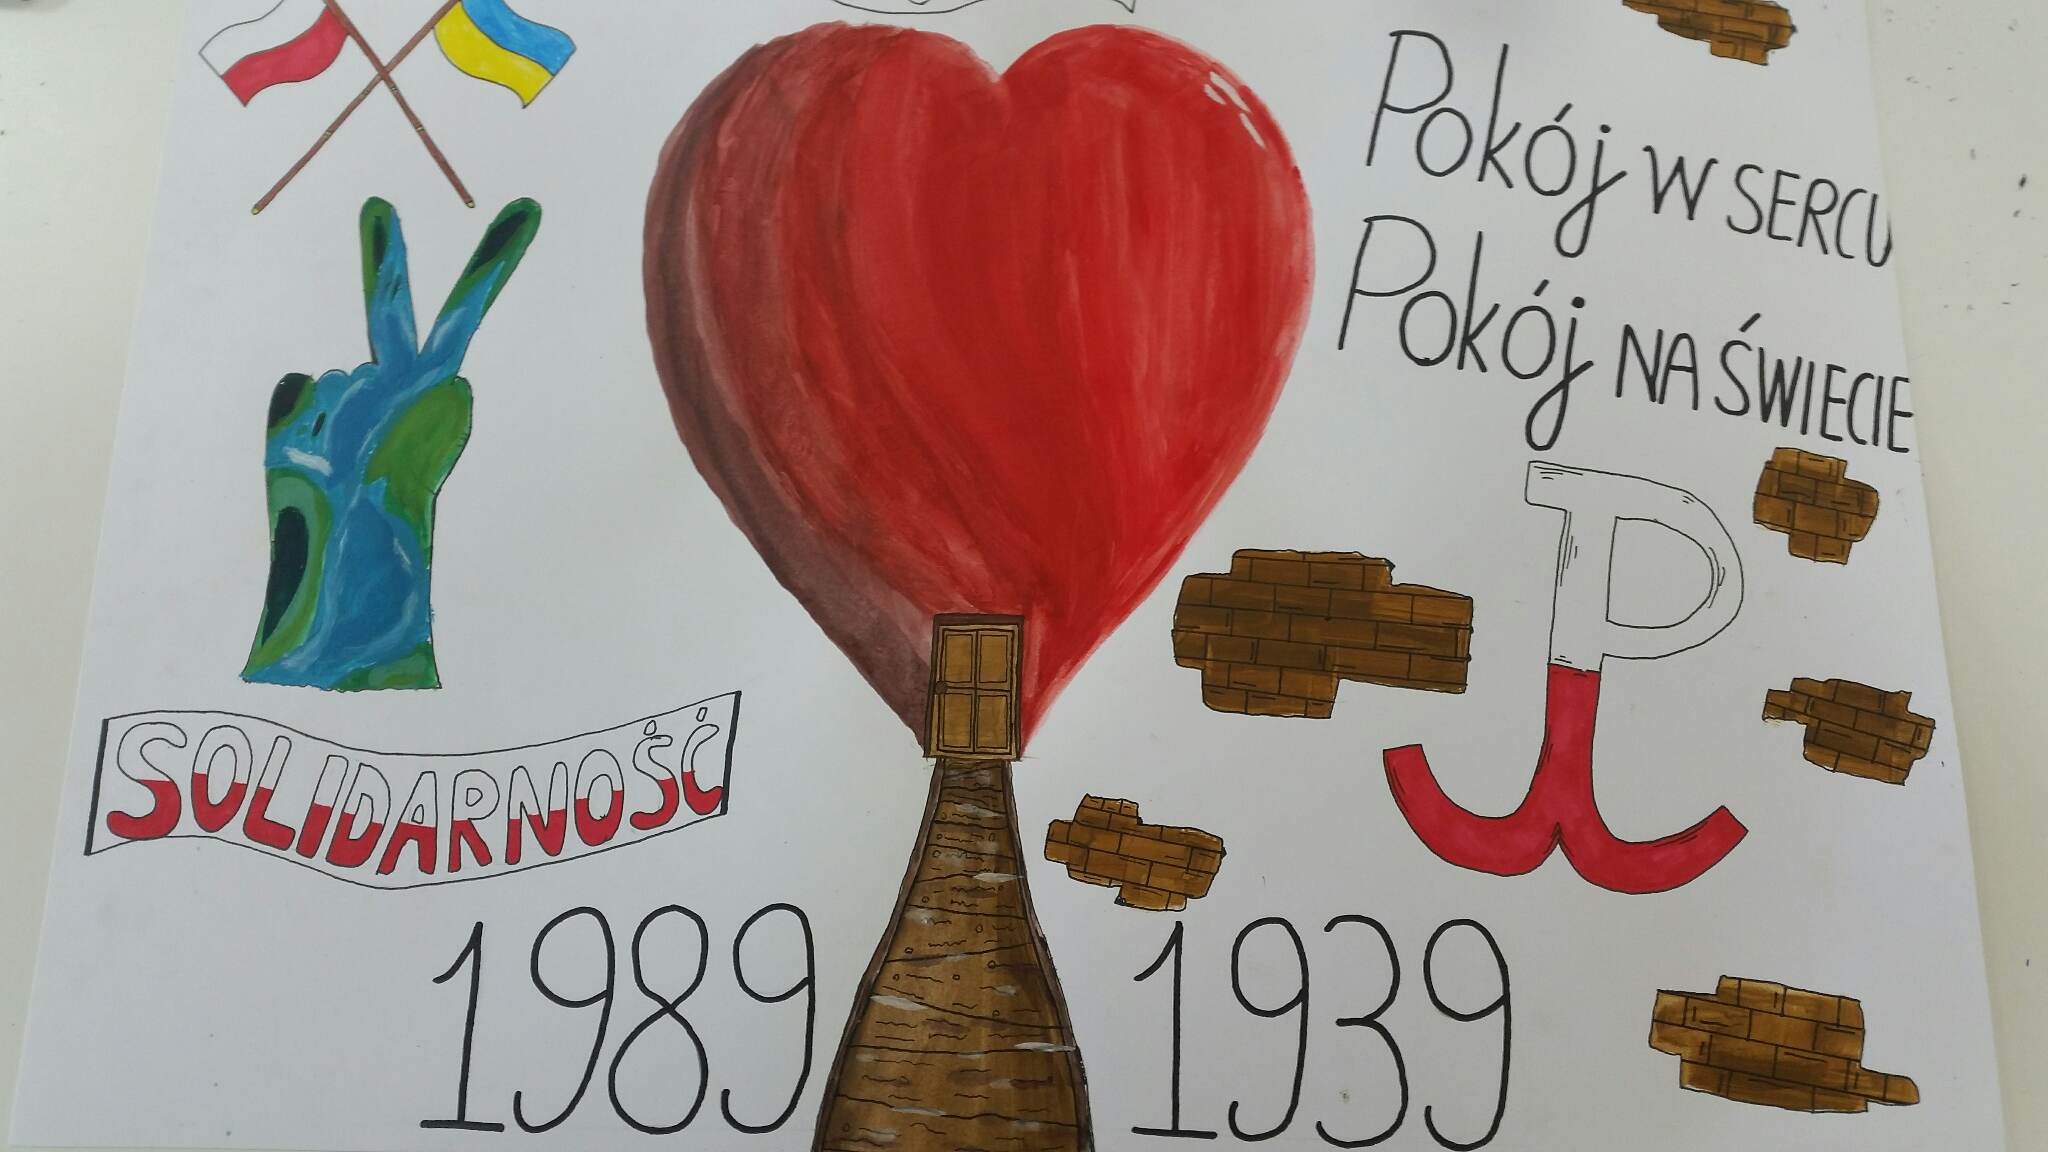 Pokój W SERCU
Pokój NA ŚWIECIE
SOLIDARNOŚĆ
1989
1939